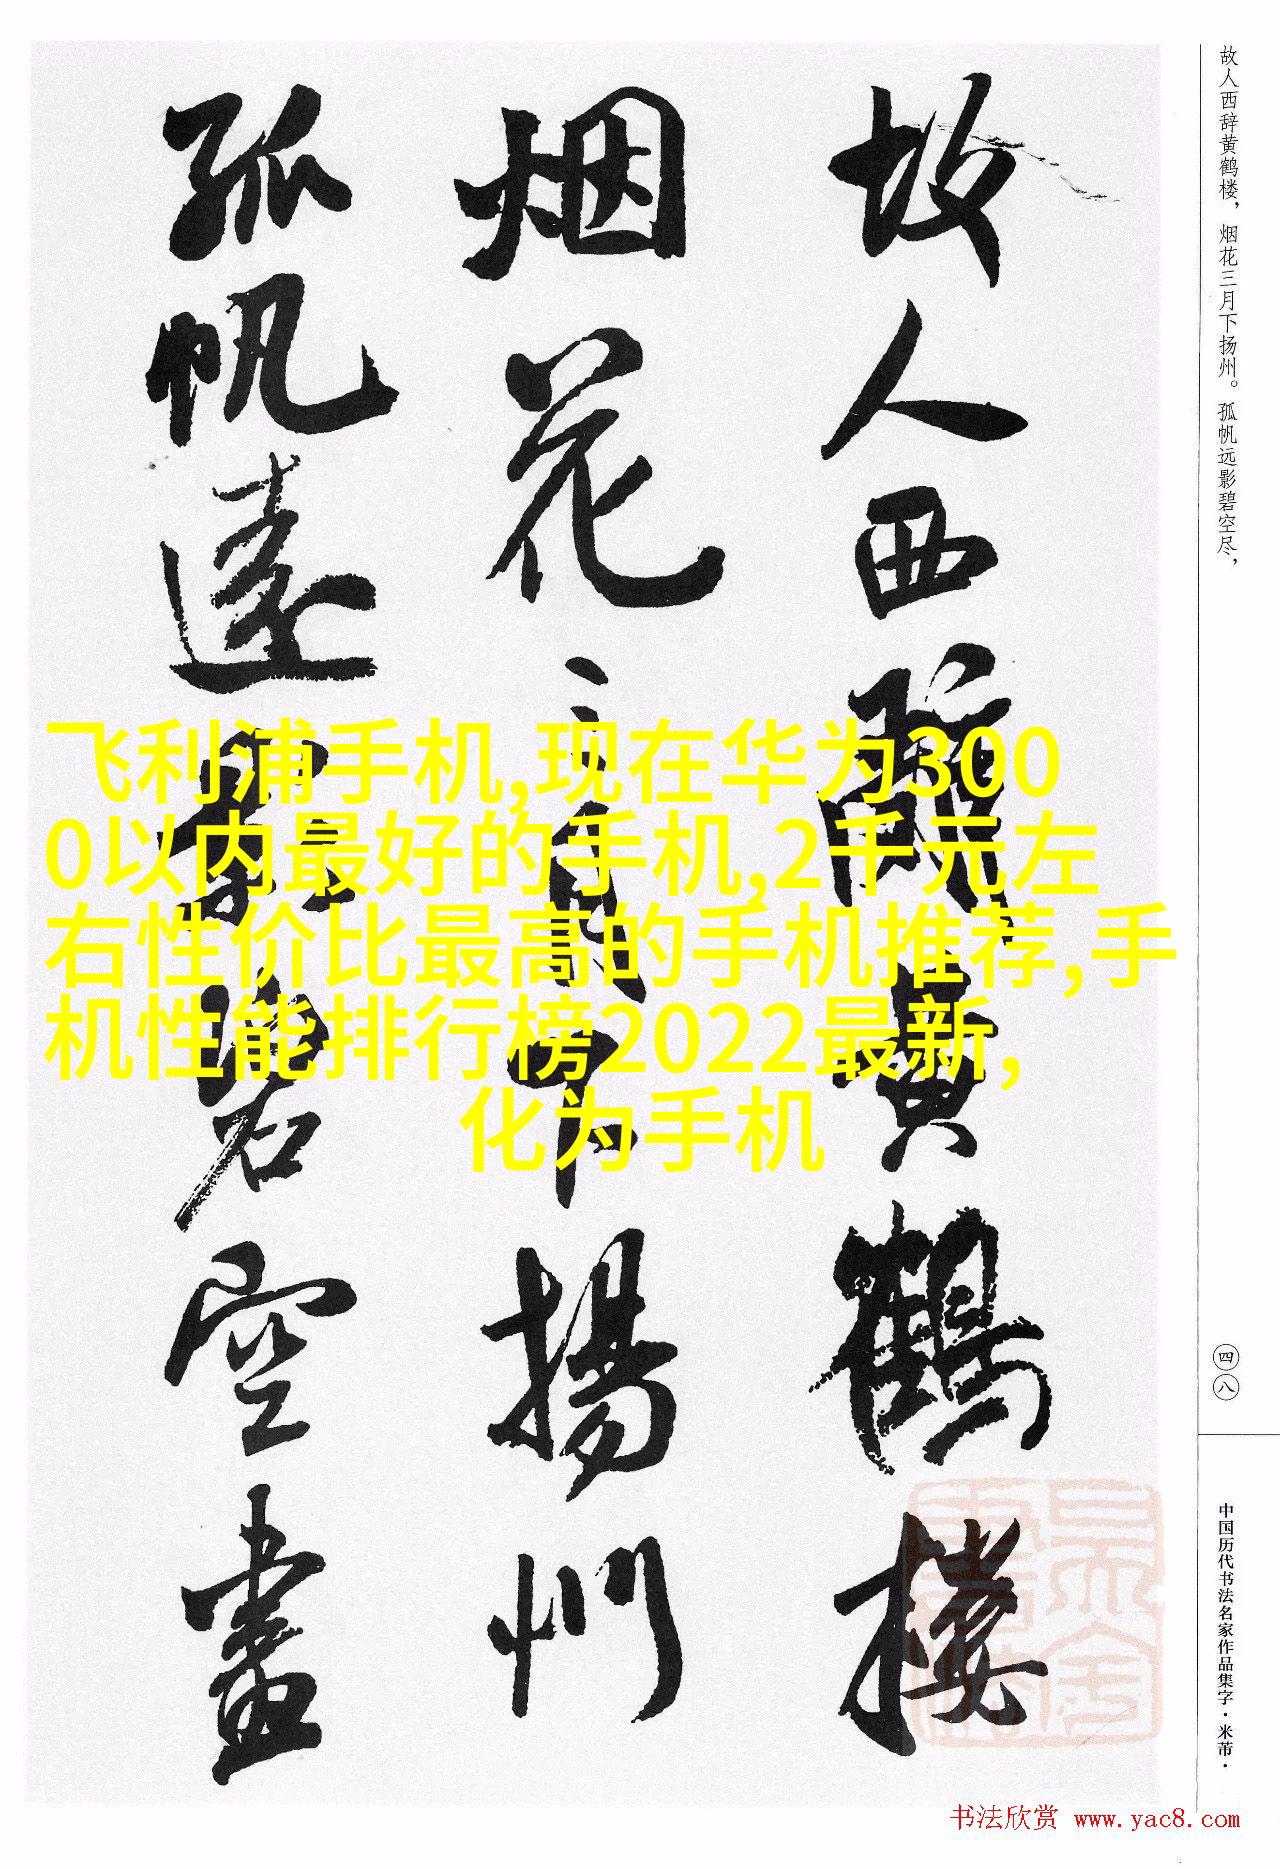 故人西辞黄鹤楼
烟花三月下揚州
孤帆遠影碧空盡
故人西辞黄鹤楼，烟花三月下扬州。孤帆远影碧空尽，
飞利浦手机,现在华为300
0以内最好的手机,2千元左
右性价比最高的手机推荐,手
机性能排行榜2022最新,
化为手机
四八
中国历代书法名家作品集字·米芾·
书法欣赏 www.yac8.com